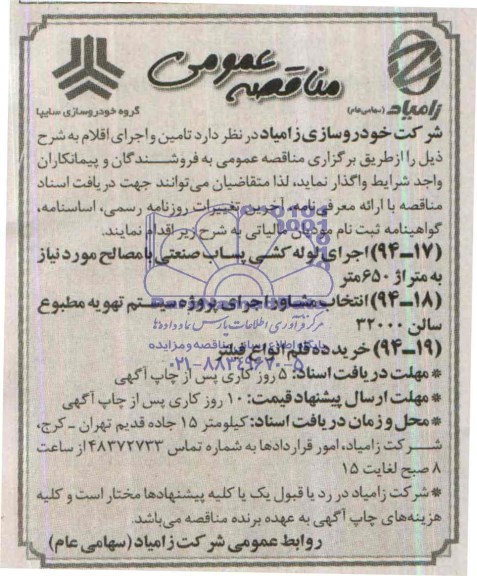 مناقصه عمومی
زامیاد (سهامی عام)
گروه خودروسازی سایپا
شرکت خودروسازی زامیاد در نظر دارد تامین و اجرای اقلام به شرح
ذیل را از طریق برگزاری مناقصه عمومی به فروشندگان و پیمانکاران
واجد شرایط واگذار نماید، لذا متقاضیان می‌توانند جهت دریافت اسناد
مناقصه با ارائه معرفی‌نامه، آخرین تغییرات روزنامه رسمی، اساسنامه،
گواهینامه ثبت نام مودیان مالیاتی به شرح زیر اقدام نمایند.
(۱۷-۹۴) اجرای لوله کشی پساب صنعتی با مصالح مورد نیاز
به متراژ ۶۵۰ متر
(۱۸-۹۴) انتخاب مشاور اجرای پروژه سیستم تهویه مطبوع
سالن ۳۲۰۰۰
مرکز فرآوری اطلاعات پارس نماد داده‌ها
(۱۹-۹۴) خرید ده قلم انواع فیلتر
پایگاه اطلاع رسانی مناقصه و مزایده
۰۲۱-۸۸۳۴۹۶۷۰-۵
*مهلت دریافت اسناد: ۵ روز کاری پس از چاپ آگهی
*مهلت ارسال پیشنهاد قیمت: ۱۰ روز کاری پس از چاپ آگهی
*محل و زمان دریافت اسناد: کیلومتر ۱۵ جاده قدیم تهران - کرج،
شرکت زامیاد، امور قراردادها به شماره تماس ۴۸۳۷۲۷۳۳ از ساعت
۸ صبح لغایت ۱۵
*شرکت زامیاد در رد یا قبول یک یا کلیه پیشنهادها مختار است و کلیه
هزینه‌های چاپ آگهی به عهده برنده مناقصه می‌باشد.
روابط عمومی شرکت زامیاد (سهامی عام)